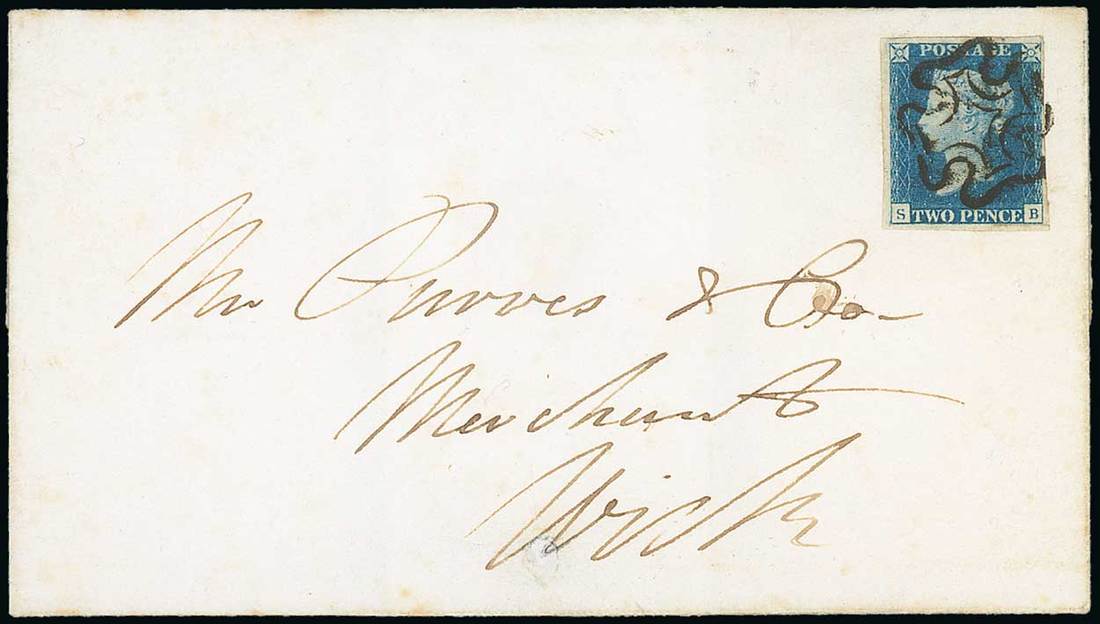 POSTAGE
S TWO PENCE B
Mr Purves & Co
Merchants
Wick